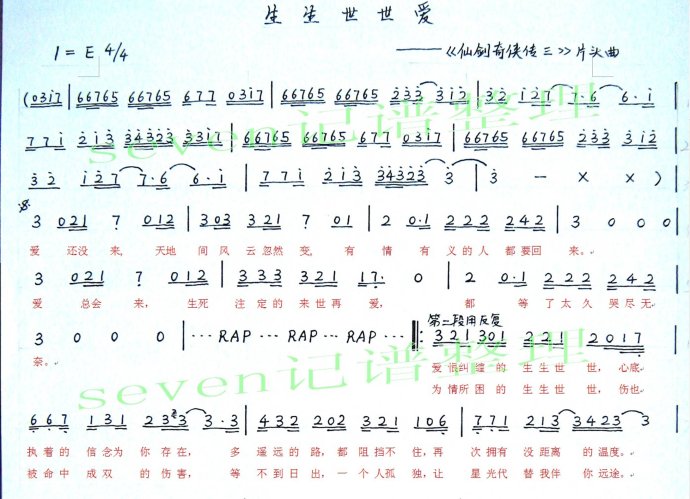 生生世世爱
1=E 4/4 ——《仙剑奇侠传三》片头曲
(0317 | 66765 66765 677 0317 | 66765 66765 233 313 | 32 127 7·6 6·1 |
771 213 34323 3317 | 66765 66765 677 0317 | 66765 66765 233 313 |
32 127 7·6 6·1 | 771 213 34323 3 | 3 — X X )
3 021 7 012 | 303 321 7 01 | 2 0·1 222 242 | 3 0 0 0 |
爱 还没 来, 天地 间 风 云 忽然 变, 有 情 有 义的 人 都 要回 来。
3 021 7 012 | 333 321 17· 0 | 2 0·1 222 242 |
爱 总会 来, 生死 注 定的 来世再 爱, 都 等 了 太 久 哭尽 无
第二段用反复
3 0 0 0 | ··· RAP ··· RAP ··· RAP ··· ‖: 321 301 221 2017 |
奈。 爱 恨纠 缠的 生生世 世, 心底
为情所困的 生生世 世, 伤也
667 131 2333 3·3 | 432 202 321 106 | 771 213 3423 3 |
执着的 信念为 你 存在, 多 遥远的 路, 都 阻挡不 住,再 次 拥有 没 距离 的 温度。
被命中 成双 的 伤害, 等 不到 日 出, 一个人 孤 独,让 星光代 替我伴 你 远途。
seven记谱整理
seven记谱整理